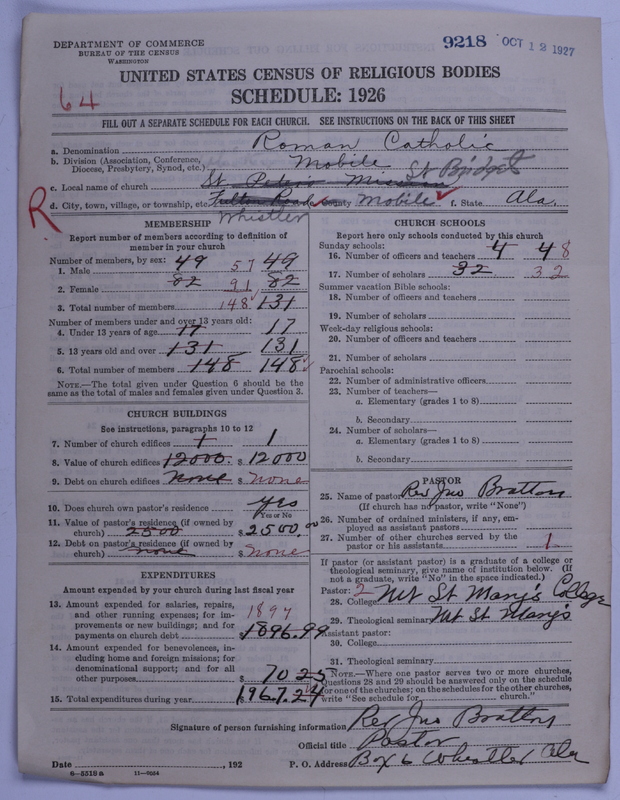 DEPARTMENT OF COMMERCE
BUREAU OF THE CENSUS
WASHINGTON
9218 OCT 12 1927
UNITED STATES CENSUS OF RELIGIOUS BODIES
SCHEDULE: 1926
64
FILL OUT A SEPARATE SCHEDULE FOR EACH CHURCH. SEE INSTRUCTIONS ON THE BACK OF THIS SHEET
a. Denomination Roman Catholic
b. Division (Association, Conference, Diocese, Presbytery, Synod, etc.) Mobile
c. Local name of church St. Peters Mission St Bridget
R
d. City, town, village, or township, etc. Fulton Road County Mobile f. State Ala.
Whistler
MEMBERSHIP
Report number of members according to definition of
member in your church
Number of members, by sex:
1. Male 49 57 49
2. Female 82 91 82
3. Total number of members 148 131
Number of members under and over 13 years old:
4. Under 13 years of age 17 17
5. 13 years old and over 131 131
6. Total number of members 148 148
NOTE.—The total given under Question 6 should be the
same as the total of males and females given under Question 3.
CHURCH BUILDINGS
See instructions, paragraphs 10 to 12
7. Number of church edifices 1 1
8. Value of church edifices 12000. $ 12000
9. Debt on church edifices none $ None
10. Does church own pastor's residence yes
Yes or No
11. Value of pastor's residence (if owned by
church) 2500 $ 2500.00
12. Debt on pastor's residence (if owned by
church) none $ None
EXPENDITURES
Amount expended by your church during last fiscal year
13. Amount expended for salaries, repairs,
and other running expenses; for im-
provements or new buildings; and for
payments on church debt 1897 $ 1896.99
14. Amount expended for benevolences, in-
cluding home and foreign missions; for
denominational support; and for all
other purposes $ 70 25
15. Total expenditures during year $ 1967.24
CHURCH SCHOOLS
Report here only schools conducted by this church
Sunday schools:
16. Number of officers and teachers 4 4 8
17. Number of scholars 32 32
Summer vacation Bible schools:
18. Number of officers and teachers
19. Number of scholars
Week-day religious schools:
20. Number of officers and teachers
21. Number of scholars
Parochial schools:
22. Number of administrative officers
23. Number of teachers—
a. Elementary (grades 1 to 8)
b. Secondary
24. Number of scholars—
a. Elementary (grades 1 to 8)
b. Secondary
PASTOR
25. Name of pastor Rev Jno Bratton
(If church has no pastor, write "None")
26. Number of ordained ministers, if any, em-
ployed as assistant pastors
27. Number of other churches served by the
pastor or his assistants 1
If pastor (or assistant pastor) is a graduate of a college or
theological seminary, give name of institution below. (If
not a graduate, write "No" in the space indicated.)
Pastor: 2
28. College Mt St Mary's College
29. Theological seminary Mt St Mary's
Assistant pastor:
30. College
31. Theological seminary
NOTE.—Where one pastor serves two or more churches,
Questions 28 and 29 should be answered only on the schedule
for one of the churches; on the schedules for the other churches,
write "See schedule for church."
Signature of person furnishing information Rev Jno Bratton
Official title Pastor
Date , 192 P. O. Address Box 6 Whistler Ala
6—5518a 11—9054